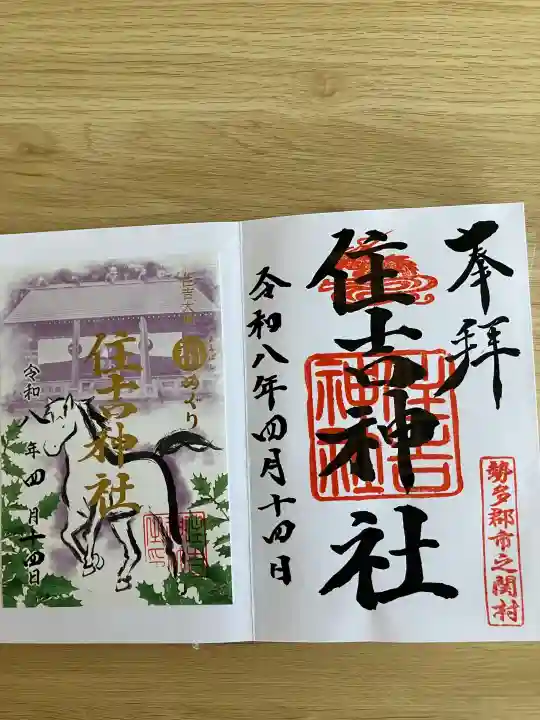 奉拝
住吉神社
住吉神社
令和八年四月十四日
勢多郡市之関村
めぐり
住吉神社
令和八年四月十四日